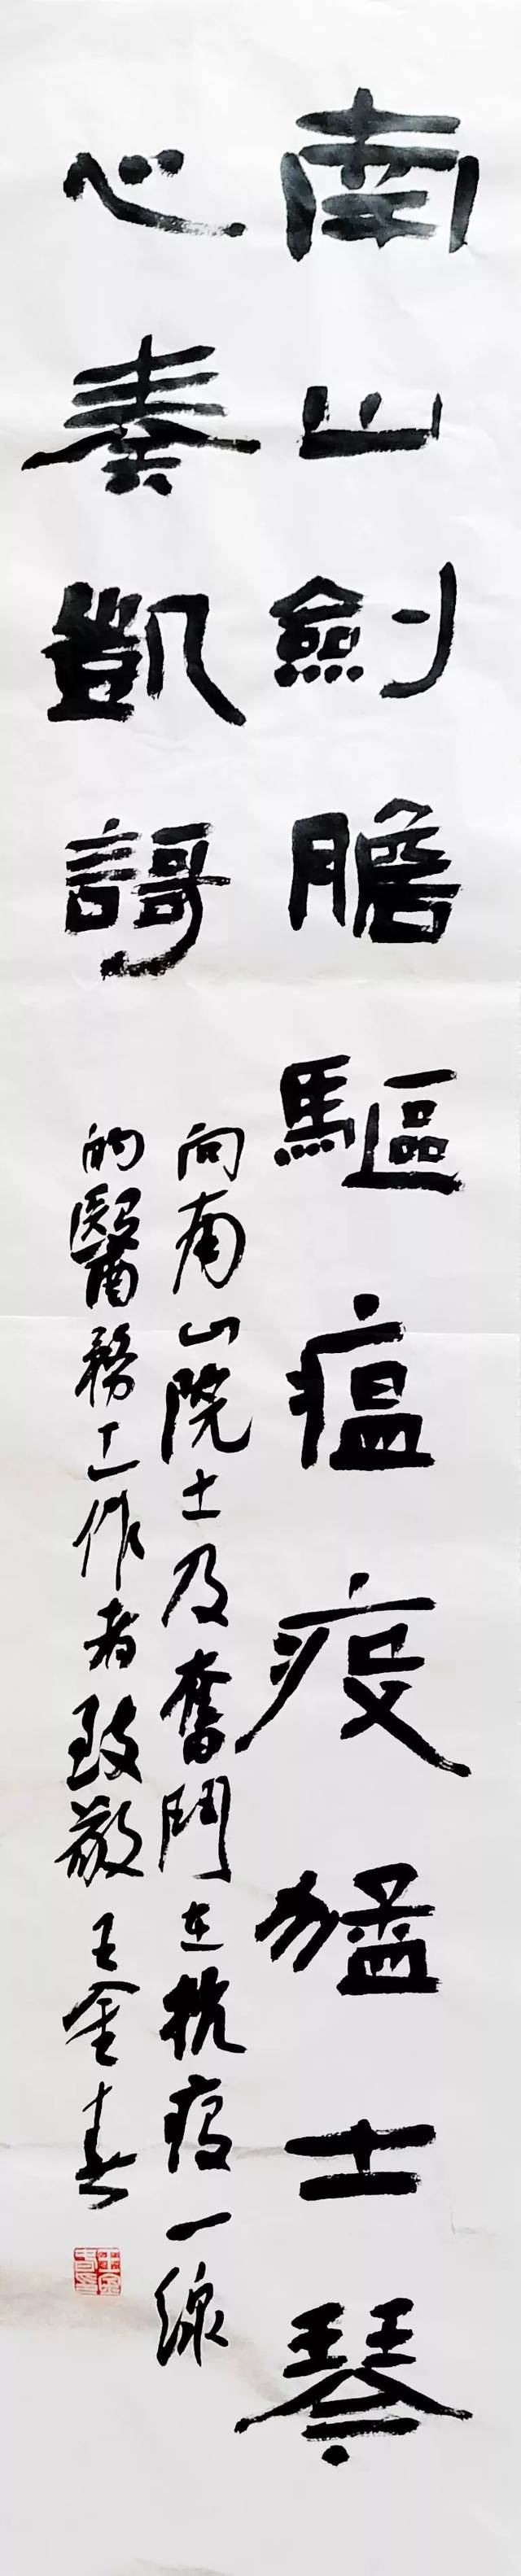 南山劍膽驅瘟疫猛士琴
心奏凱謌
向南山院士及奮鬥在抗疫一線
的醫務工作者致敬 王金春